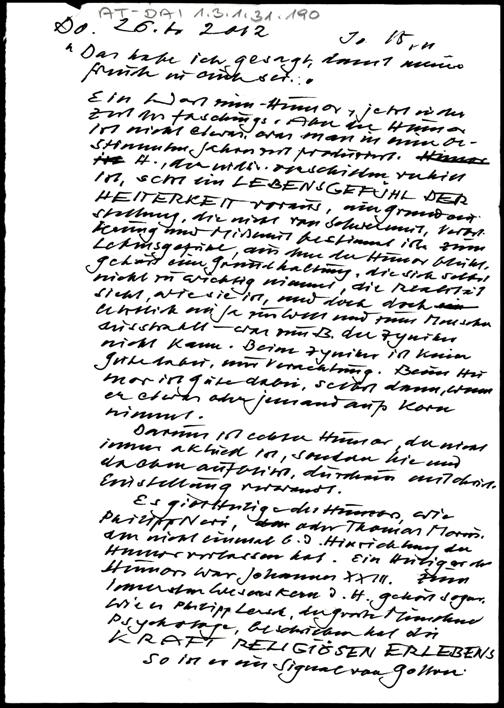 AT-DAI 1.3.1.31.190
Do. 26. 2012 Jo 15,11
"Das habe ich gesagt, damit meine
Freude in euch sei...
Ein Wort zum Humor, jetzt in der
Zeit des Faschings. Aber der Humor
ist nicht etwas, was man in einer be-
stimmten Jahreszeit produziert.
H., der nicht
ist, setzt ein LEBENSGEFÜHL DER
HEITERKEIT voraus, eine Grundein
stellung, die nicht von Schwermut,
und Mißmut bestimmt ist. Zum
Lebensgefühl, aus dem der Humor
gehört eine Grundhaltung, die sich selbst
nicht zu wichtig nimmt, die Realität
sieht, wie sie ist, und doch doch ein
ja zur Welt und zum Menschen
ausstrahlt – was z.B. der Zyniker
nicht kann. Beim Zyniker ist keine
Güte dabei, nur Verachtung. Beim Hu
mor ist Güte dabei, selbst dann, wenn
er etwas oder jemand aufs Korn
nimmt.
Darum ist echter Humor, der nicht
immer aktuell ist, sondern hie und
da eben aufblitzt, durchaus mit christl.
Einstellung verwandt.
Es gibt Heilige des Humors, wie
Philipp Neri, oder Thomas Morus,
den nicht einmal b. d. Hinrichtung der
Humor verlassen hat. Ein Heiliger des
Humors war Johannes XXIII. Zum
innersten Wesenskern d. H. gehört sogar,
wie es Philipp Lersch, der große Münchner
Psychologe, beschrieben hat die
KRAFT RELIGIÖSEN ERLEBENS
So ist er ein Signal von Gott